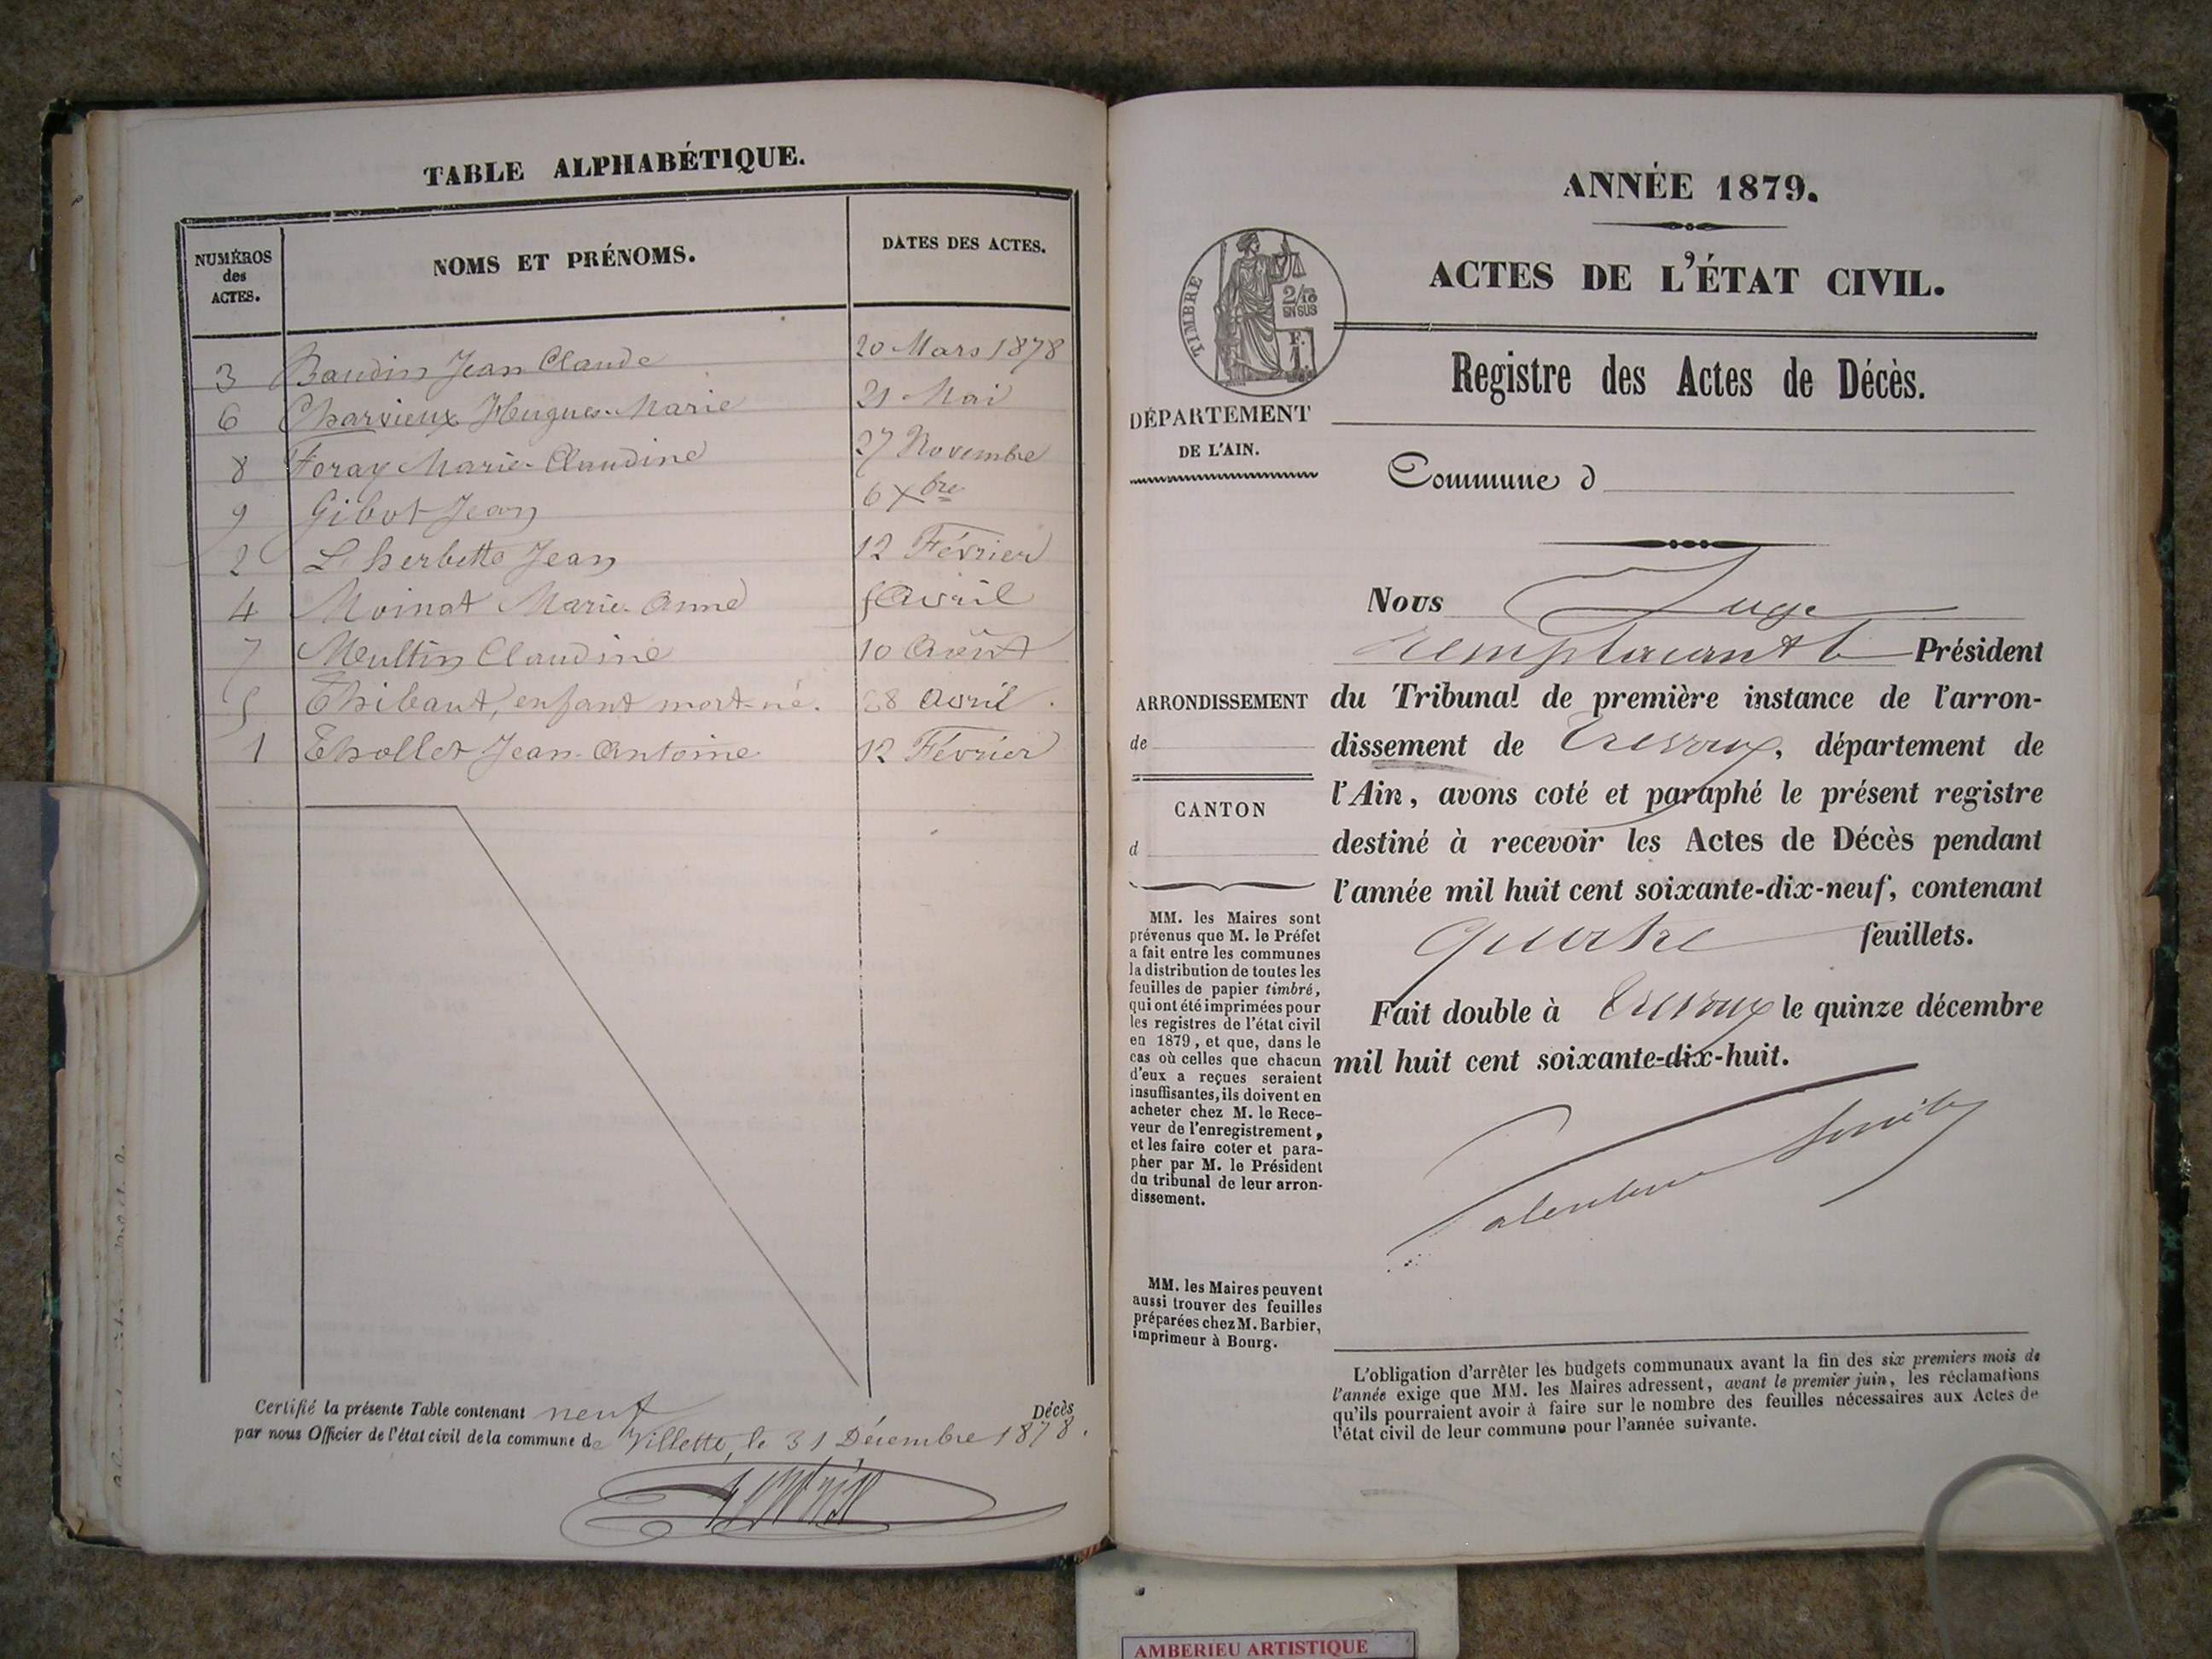 TABLE ALPHABÉTIQUE.
NUMÉROS
des
ACTES.
NOMS ET PRÉNOMS.
DATES DES ACTES.
3 Baudin Jean Claude 20 Mars 1878
6 Charvieux Hugues-Marie 21 Mai
8 Foray Marie-Claudine 27 Novembre
9 Gibot Jean 6 Xbre
2 Lherbette Jean 12 Février
4 Moinat Marie-Anne 5 Avril
7 Meultin Claudine 10 Août
5 Thibaut, enfant mort-né. 28 Avril.
1 Thollet Jean-Antoine 12 Février
Certifié la présente Table contenant neuf Décès
par nous Officier de l'état civil de la commune de Villette, le 31 Décembre 1878.
ANNÉE 1879.
ACTES DE L'ÉTAT CIVIL.
TIMBRE
2/10
EN SUS
F.
1
Registre des Actes de Décès.
DÉPARTEMENT
DE L'AIN.
Commune d
Nous Juge
remplaçant le Président
du Tribunal de première instance de l'arron-
dissement de Trevoux, département de
l'Ain, avons coté et paraphé le présent registre
destiné à recevoir les Actes de Décès pendant
l'année mil huit cent soixante-dix-neuf, contenant
quatre feuillets.
Fait double à Trevoux le quinze décembre
mil huit cent soixante-dix-huit.
ARRONDISSEMENT
de
CANTON
d
MM. les Maires sont
prévenus que M. le Préfet
a fait entre les communes
la distribution de toutes les
feuilles de papier timbré,
qui ont été imprimées pour
les registres de l'état civil
en 1879, et que, dans le
cas où celles que chacun
d'eux a reçues seraient
insuffisantes, ils doivent en
acheter chez M. le Rece-
veur de l'enregistrement,
et les faire coter et para-
pher par M. le Président
du tribunal de leur arron-
dissement.
MM. les Maires peuvent
aussi trouver des feuilles
préparées chez M. Barbier,
imprimeur à Bourg.
L'obligation d'arrêter les budgets communaux avant la fin des six premiers mois de
l'année exige que MM. les Maires adressent, avant le premier juin, les réclamations
qu'ils pourraient avoir à faire sur le nombre des feuilles nécessaires aux Actes de
l'état civil de leur commune pour l'année suivante.
AMBERIEU ARTISTIQUE